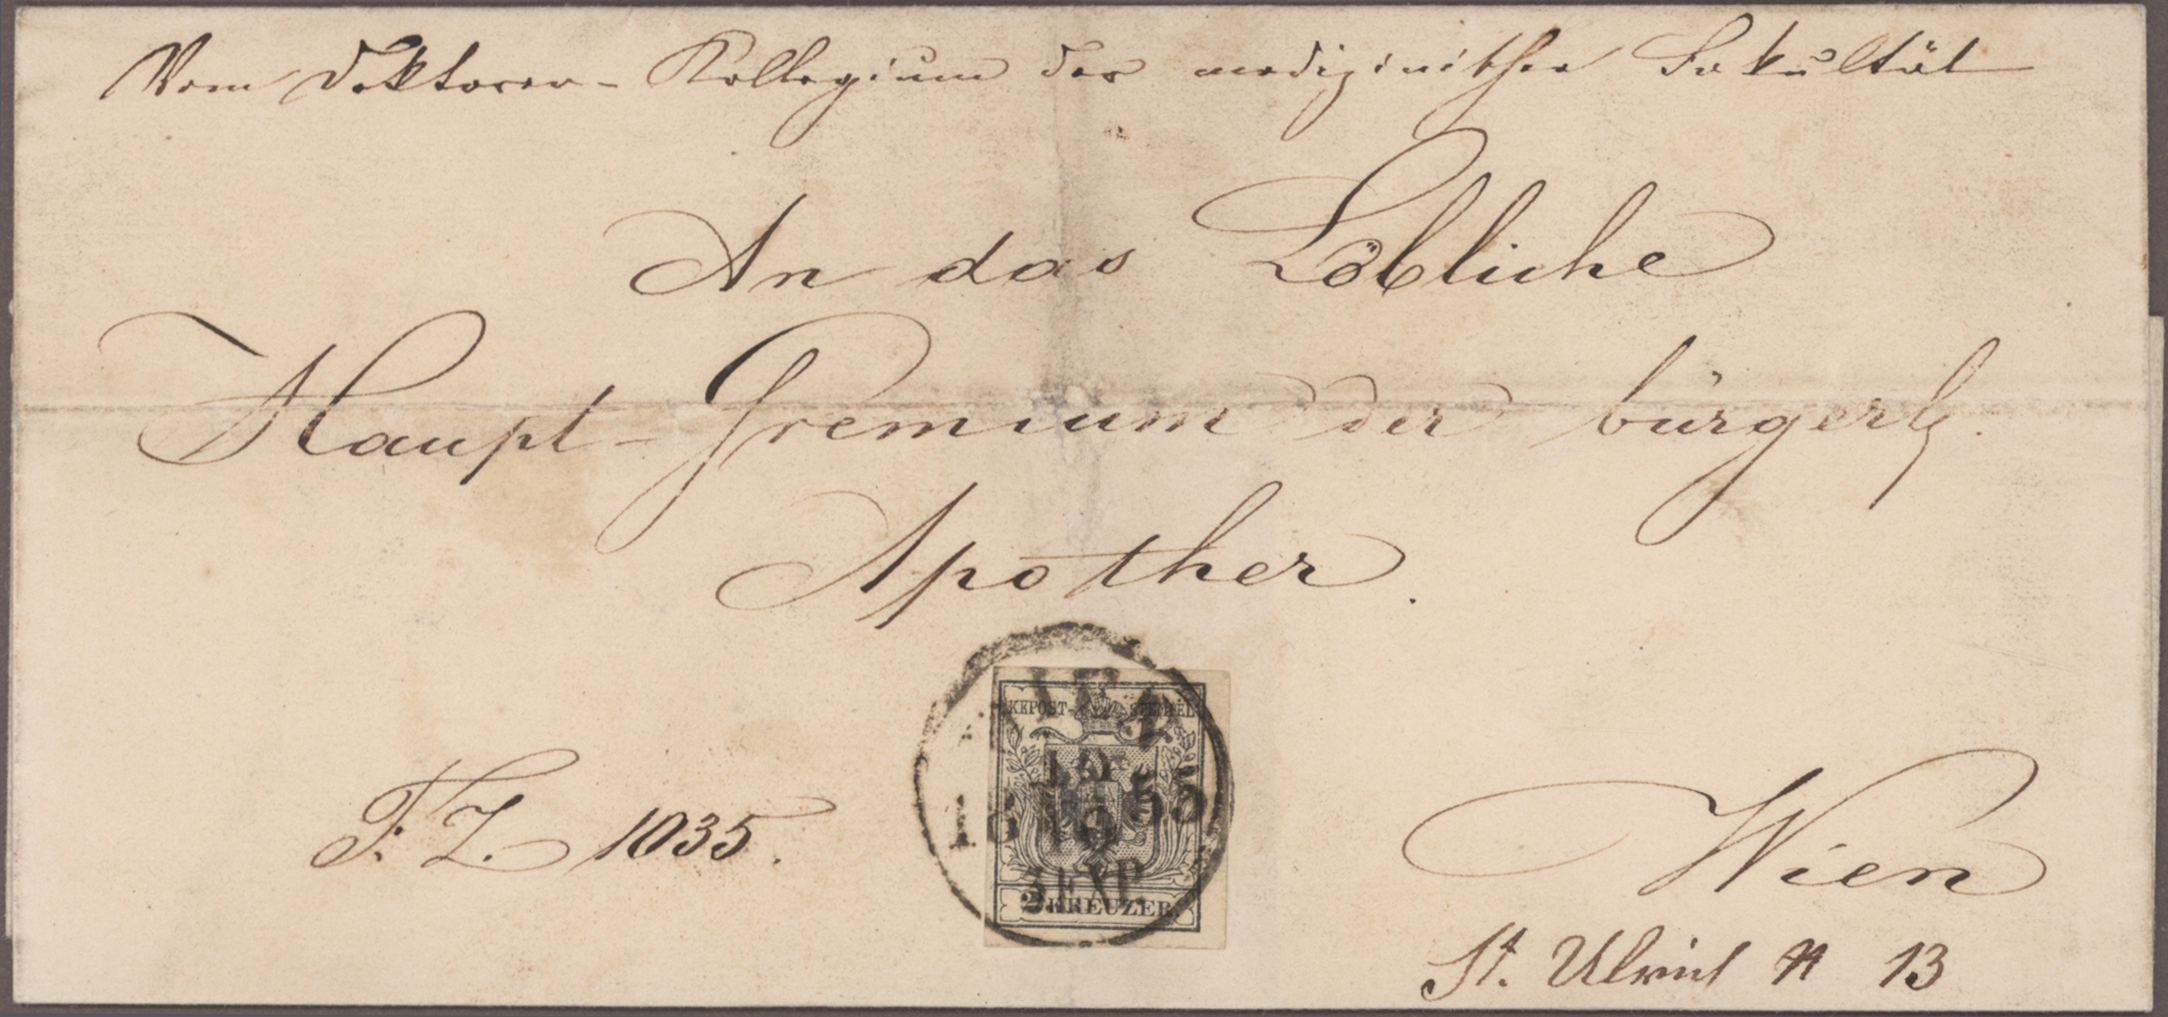 Vom Doktoren-Kollegium der medizinischen Fakultät
An das Löbliche
Haupt-Gremium der bürgerl.
Apother.
KKPOST-STEMPEL
WIEN
18 55
EXP.
2 KREUZER
F. Z. 1035.
Wien
St. Ulrich N 13